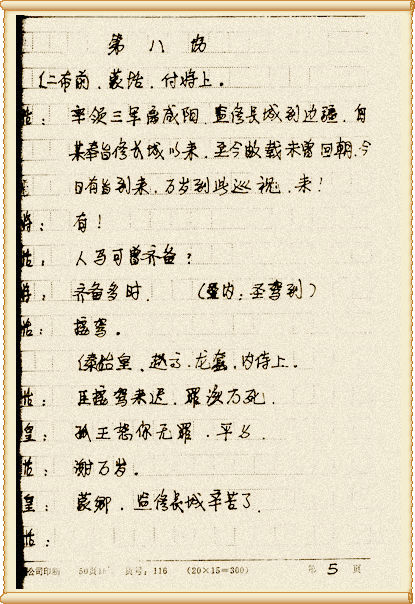 第八场
(二布前，蒙恬，付将上。
恬：率领三军离咸阳，监修长城到边疆，自
某奉旨修长城以来，至今数载未曾回朝，今
日有旨到来，万岁到此巡视，来！
将：有！
恬：人马可曾齐备？
将：齐备多时.（里内：圣驾到）
恬：接驾。
(秦始皇、赵高、龙套、内侍上。
恬：臣接驾来迟，罪该万死.
皇：孤王恕你无罪，平身.
恬：谢万岁。
皇：蒙卿，监修长城辛苦了.
恬：
公司印刷 50页 页号：116 (20×15=300) 第 5 页